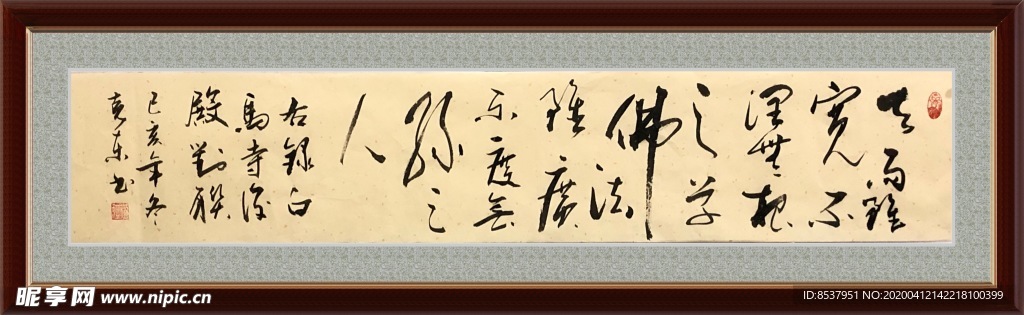 天雨雖
寬不
潤無根
之草
佛法
雖廣
不度無
緣之
人
右録白
馬寺後
殿對聯
己亥年冬
克東書
昵享网 www.nipic.cn
ID:8537951 NO:20200412142218100399